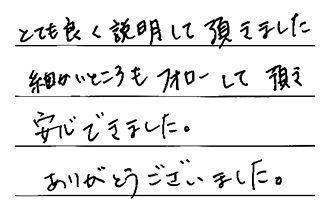 とても良く説明して頂きました
細かいところもフォローして頂き
安心できました。
ありがとうございました。